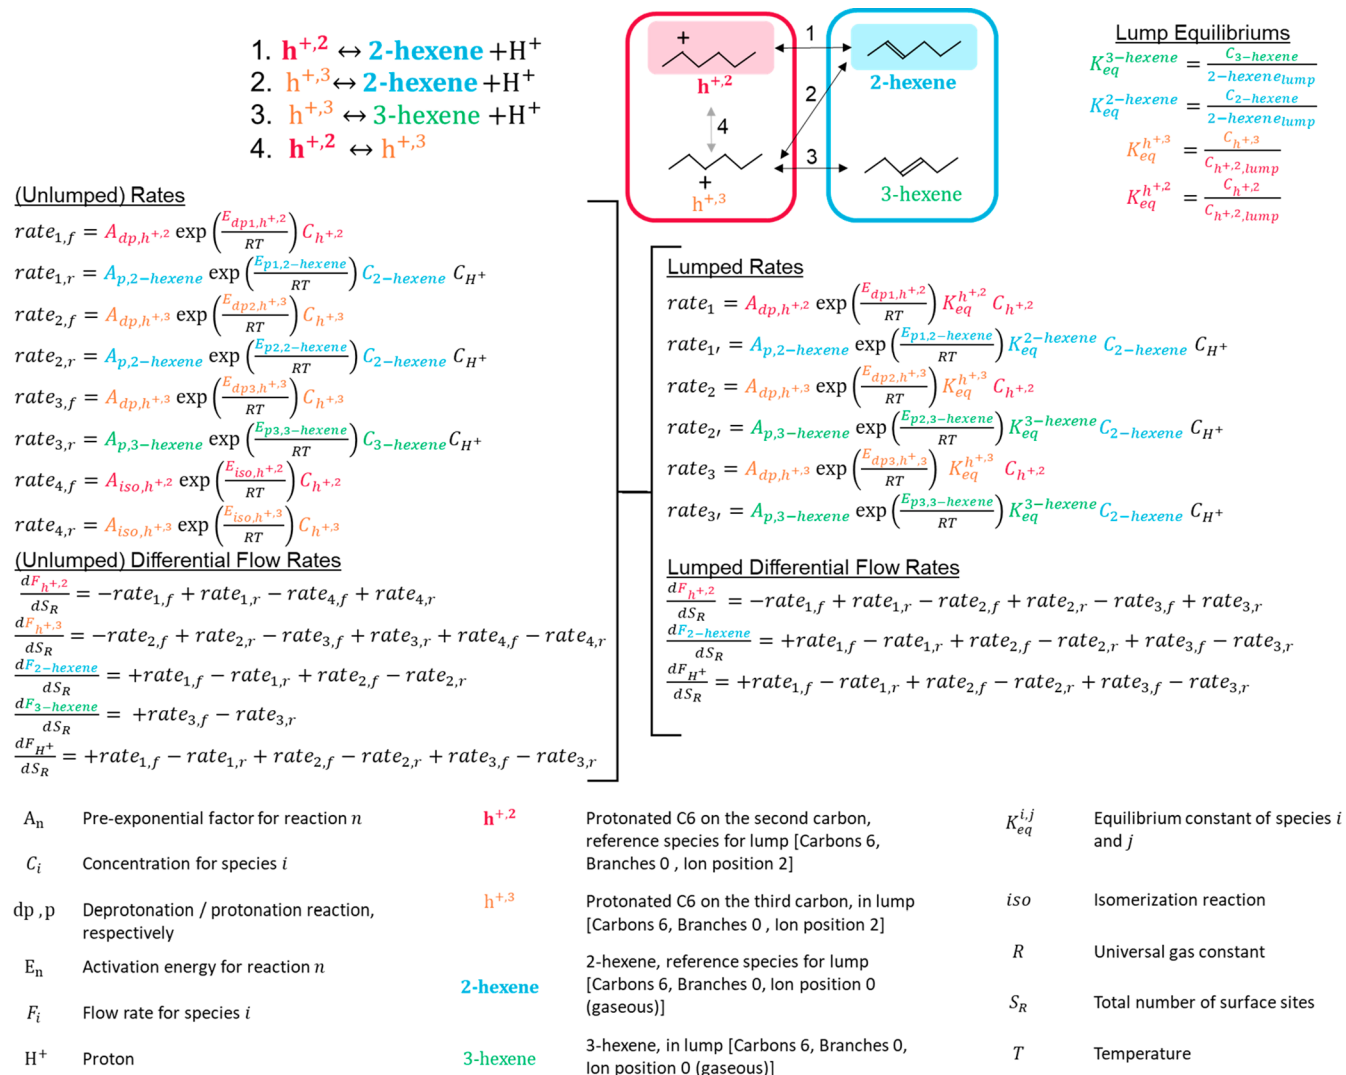 1. h+,2 ↔ 2-hexene +H+
2. h+,3 ↔ 2-hexene +H+
3. h+,3 ↔ 3-hexene +H+
4. h+,2 ↔ h+,3
+
h+,2
1
2-hexene
2
4
+
h+,3
3
3-hexene
Lump Equilibriums
K_eq^{3-hexene} = C_{3-hexene} / 2-hexene_{lump}
K_eq^{2-hexene} = C_{2-hexene} / 2-hexene_{lump}
K_eq^{h+,3} = C_{h+,3} / C_{h+,2,lump}
K_eq^{h+,2} = C_{h+,2} / C_{h+,2,lump}
(Unlumped) Rates
rate_{1,f} = A_{dp,h+,2} exp(E_{dp1,h+,2} / RT) C_{h+,2}
rate_{1,r} = A_{p,2-hexene} exp(E_{p1,2-hexene} / RT) C_{2-hexene} C_{H+}
rate_{2,f} = A_{dp,h+,3} exp(E_{dp2,h+,3} / RT) C_{h+,3}
rate_{2,r} = A_{p,2-hexene} exp(E_{p2,2-hexene} / RT) C_{2-hexene} C_{H+}
rate_{3,f} = A_{dp,h+,3} exp(E_{dp3,h+,3} / RT) C_{h+,3}
rate_{3,r} = A_{p,3-hexene} exp(E_{p3,3-hexene} / RT) C_{3-hexene} C_{H+}
rate_{4,f} = A_{iso,h+,2} exp(E_{iso,h+,2} / RT) C_{h+,2}
rate_{4,r} = A_{iso,h+,3} exp(E_{iso,h+,3} / RT) C_{h+,3}
(Unlumped) Differential Flow Rates
dF_{h+,2} / dS_R = −rate_{1,f} + rate_{1,r} − rate_{4,f} + rate_{4,r}
dF_{h+,3} / dS_R = −rate_{2,f} + rate_{2,r} − rate_{3,f} + rate_{3,r} + rate_{4,f} − rate_{4,r}
dF_{2-hexene} / dS_R = +rate_{1,f} − rate_{1,r} + rate_{2,f} − rate_{2,r}
dF_{3-hexene} / dS_R = +rate_{3,f} − rate_{3,r}
dF_{H+} / dS_R = +rate_{1,f} − rate_{1,r} + rate_{2,f} − rate_{2,r} + rate_{3,f} − rate_{3,r}
Lumped Rates
rate_1 = A_{dp,h+,2} exp(E_{dp1,h+,2} / RT) K_eq^{h+,2} C_{h+,2}
rate_{1′} = A_{p,2-hexene} exp(E_{p1,2-hexene} / RT) K_eq^{2-hexene} C_{2-hexene} C_{H+}
rate_2 = A_{dp,h+,3} exp(E_{dp2,h+,3} / RT) K_eq^{h+,3} C_{h+,2}
rate_{2′} = A_{p,3-hexene} exp(E_{p2,3-hexene} / RT) K_eq^{3-hexene} C_{2-hexene} C_{H+}
rate_3 = A_{dp,h+,3} exp(E_{dp3,h+,3} / RT) K_eq^{h+,3} C_{h+,2}
rate_{3′} = A_{p,3-hexene} exp(E_{p3,3-hexene} / RT) K_eq^{3-hexene} C_{2-hexene} C_{H+}
Lumped Differential Flow Rates
dF_{h+,2} / dS_R = −rate_{1,f} + rate_{1,r} − rate_{2,f} + rate_{2,r} − rate_{3,f} + rate_{3,r}
dF_{2-hexene} / dS_R = +rate_{1,f} − rate_{1,r} + rate_{2,f} − rate_{2,r} + rate_{3,f} − rate_{3,r}
dF_{H+} / dS_R = +rate_{1,f} − rate_{1,r} + rate_{2,f} − rate_{2,r} + rate_{3,f} − rate_{3,r}
A_n Pre-exponential factor for reaction n
C_i Concentration for species i
dp ,p Deprotonation / protonation reaction,
respectively
E_n Activation energy for reaction n
F_i Flow rate for species i
H+ Proton
h+,2 Protonated C6 on the second carbon,
reference species for lump [Carbons 6,
Branches 0 , Ion position 2]
h+,3 Protonated C6 on the third carbon, in lump
[Carbons 6, Branches 0 , Ion position 2]
2-hexene 2-hexene, reference species for lump
[Carbons 6, Branches 0, Ion position 0
(gaseous)]
3-hexene 3-hexene, in lump [Carbons 6, Branches 0,
Ion position 0 (gaseous)]
K_eq^{i,j} Equilibrium constant of species i
and j
iso Isomerization reaction
R Universal gas constant
S_R Total number of surface sites
T Temperature